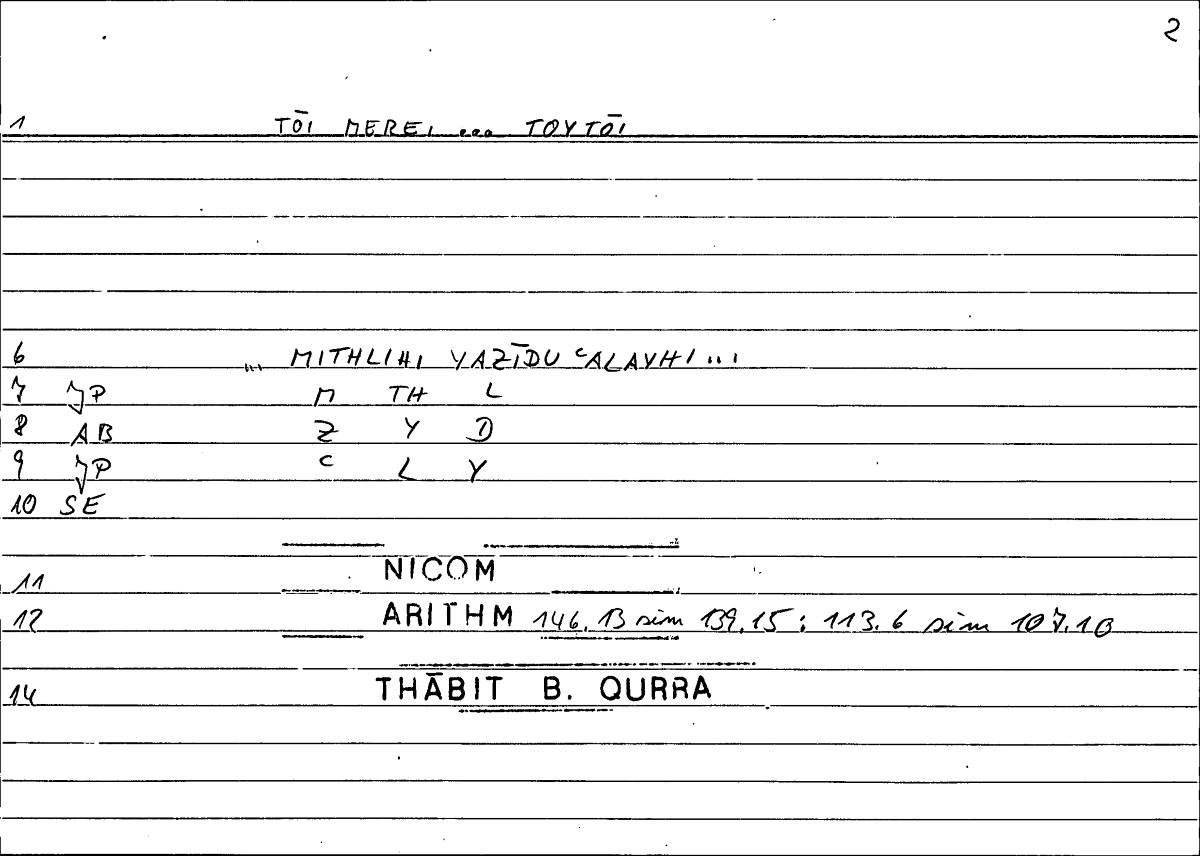 2
1 TŌI MEREI ... TOYTŌI
6 ... MITHLIHI YAZĪDU ᶜALAYHI ...
7 JP M TH L
8 AB Z Y D
9 JP ᶜ L Y
10 SE
11 NICOM
12 ARITHM 146.13 sim 139.15 : 113.6 sim 107.10
14 THĀBIT B. QURRA